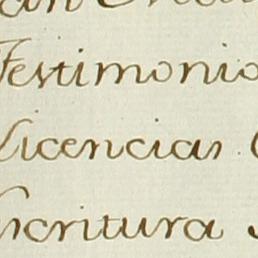 Testimonio
Licencias
Escritura